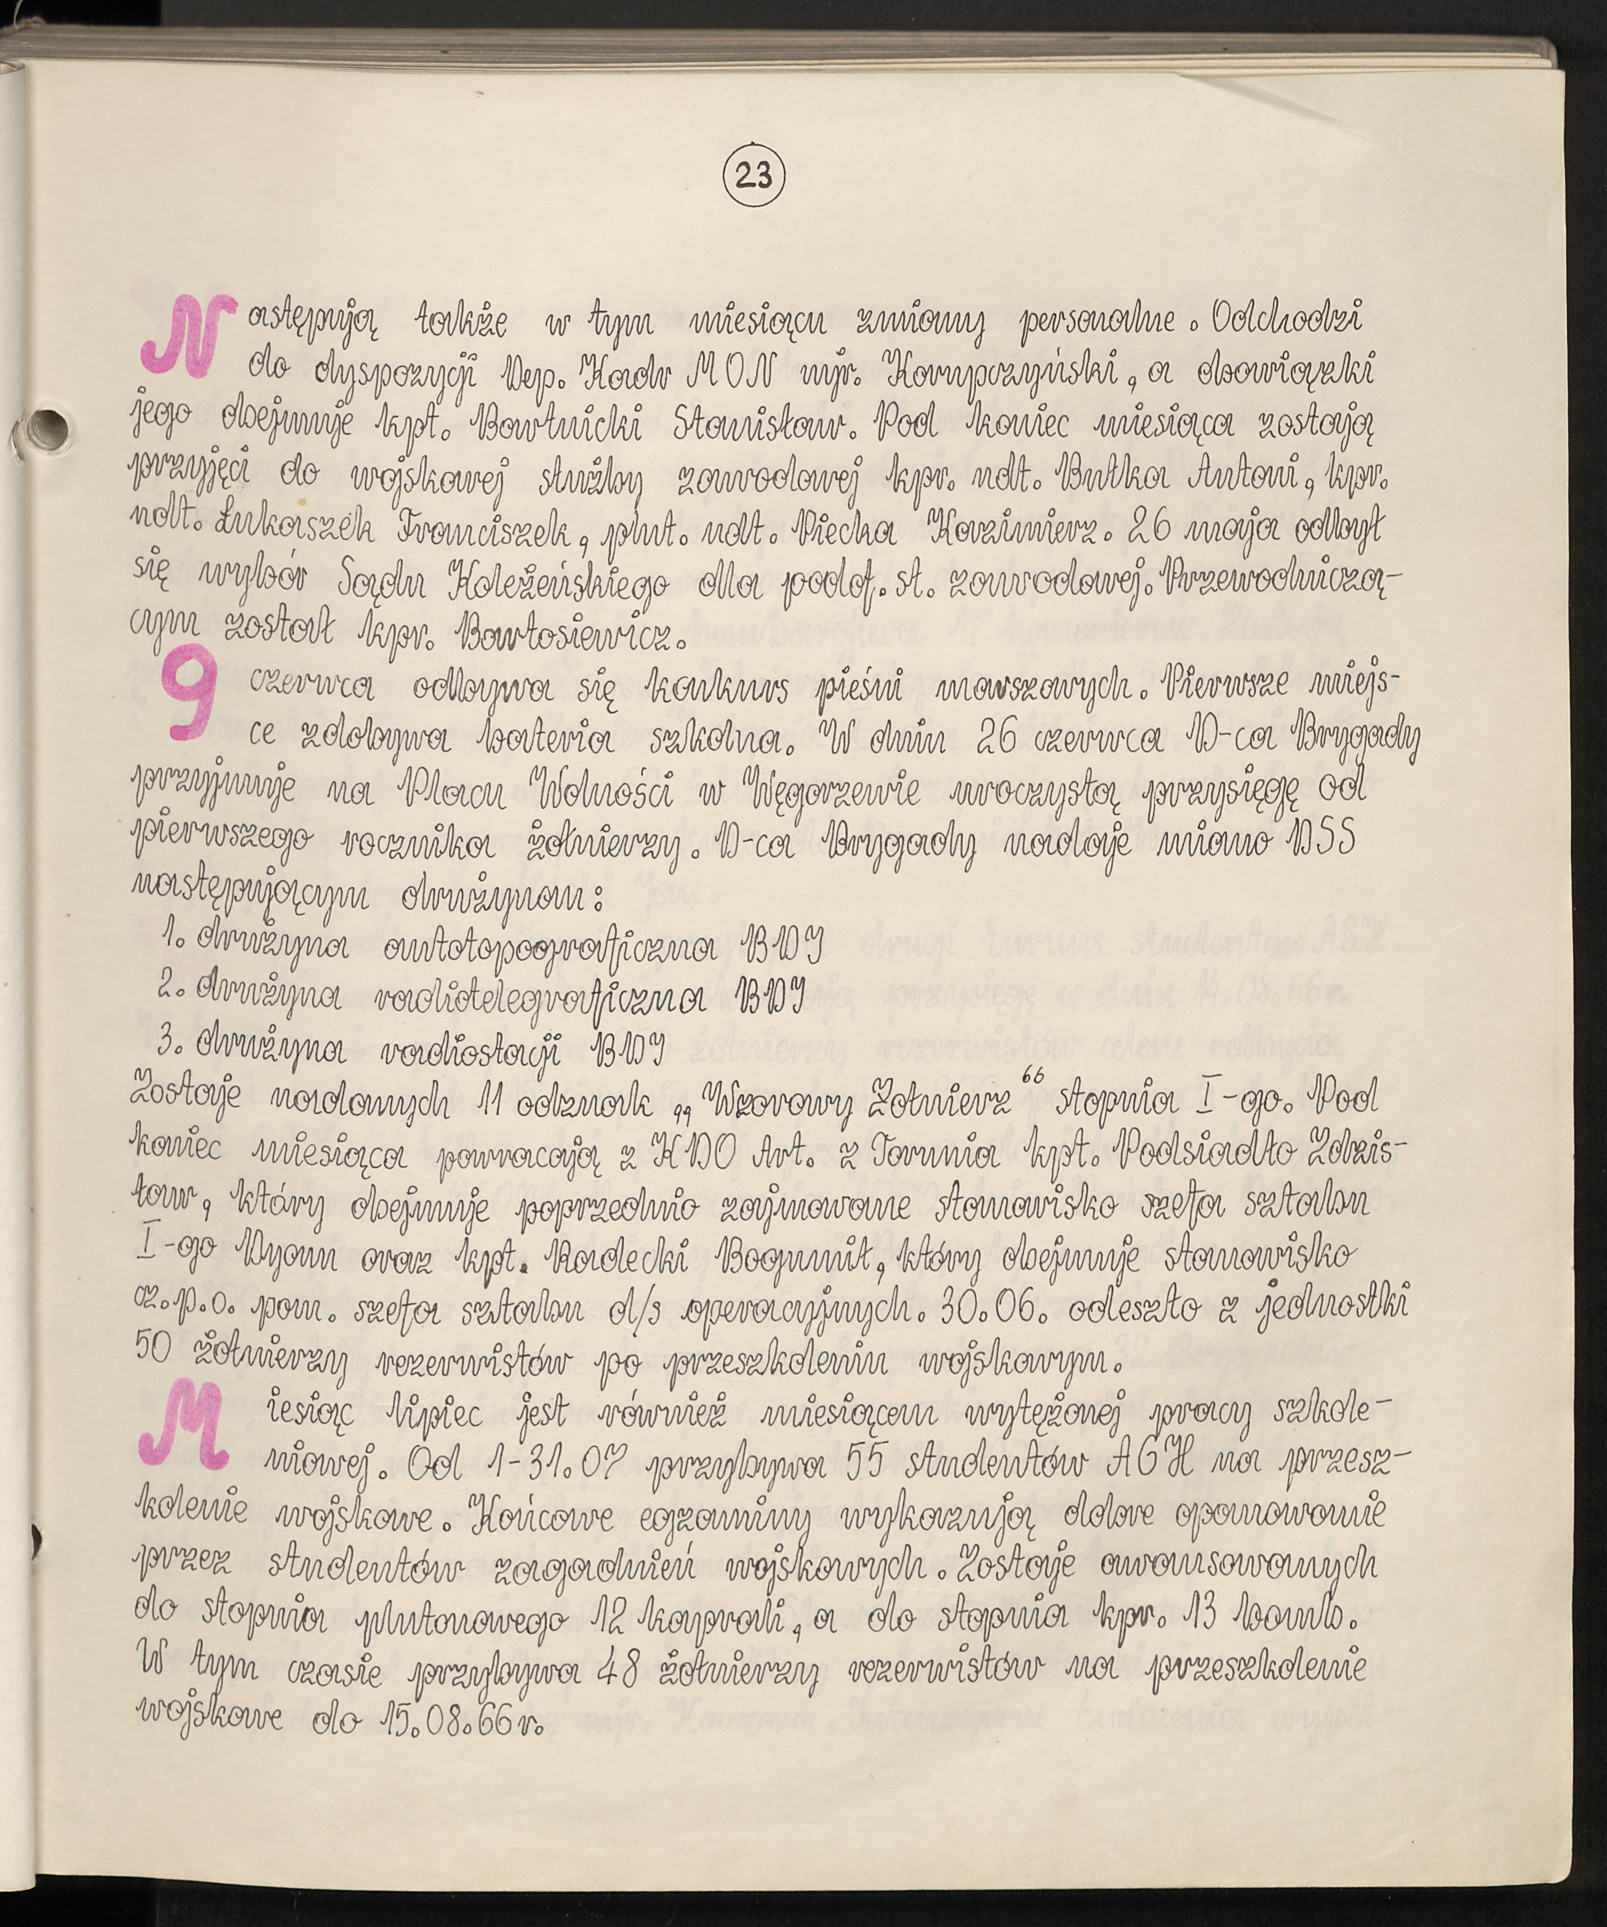 23
Następują także w tym miesiącu zmiany personalne. Odchodzi
do dyspozycji Dep. Kadr MON mjr. Karupczyński, a obowiązki
jego obejmuje kpt. Bartnicki Stanisław. Pod koniec miesiąca zostają
przyjęci do wojskowej służby zawodowej kpr. ndt. Butka Antoni, kpr.
ndt. Łukaszek Franciszek, plut. ndt. Piecka Kazimierz. 26 maja odbył
się wybór Sądu Koleżeńskiego dla podof. st. zawodowej. Przewodniczą-
cym został kpr. Bartosiewicz.
9 czerwca odbywa się konkurs pieśni marszowych. Pierwsze miejs-
ce zdobywa bateria szkolna. W dniu 26 czerwca D-ca Brygady
przyjmuje na Placu Wolności w Węgorzewie uroczystą przysięgę od
pierwszego rocznika żołnierzy. D-ca Brygady nadaje miano DSS
następującym drużynom:
1. drużyna autotopograficzna BDJ
2. drużyna radiotelegraficzna BDJ
3. drużyna radiostacji BDJ
Zostaje nadanych 11 odznak „Wzorowy Żołnierz“ stopnia I-go. Pod
koniec miesiąca powracają z KDO Art. z Torunia kpt. Podsiadło Zdzis-
ław, który obejmuje poprzednio zajmowane stanowisko szefa sztabu
I-go Dyonu oraz kpt. Radecki Bogumił, który obejmuje stanowisko
cz.p.o. pom. szefa sztabu d/s operacyjnych. 30.06. odeszło z jednostki
50 żołnierzy rezerwistów po przeszkoleniu wojskowym.
Miesiąc lipiec jest również miesiącem wytężonej pracy szkole-
niowej. Od 1-31.07 przybywa 55 studentów AGH na przesz-
kolenie wojskowe. Końcowe egzaminy wykazują dobre opanowanie
przez studentów zagadnień wojskowych. Zostaje awansowanych
do stopnia plutonowego 12 kaprali, a do stopnia kpr. 13 bomb.
W tym czasie przybywa 48 żołnierzy rezerwistów na przeszkolenie
wojskowe do 15.08.66r.